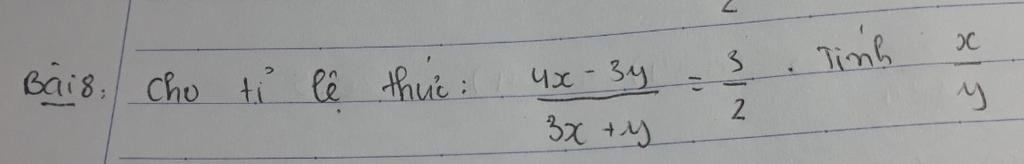 Bài 8: Cho tỉ lệ thức: \frac{4x - 3y}{3x + y} = \frac{3}{2} . Tính \frac{x}{y}